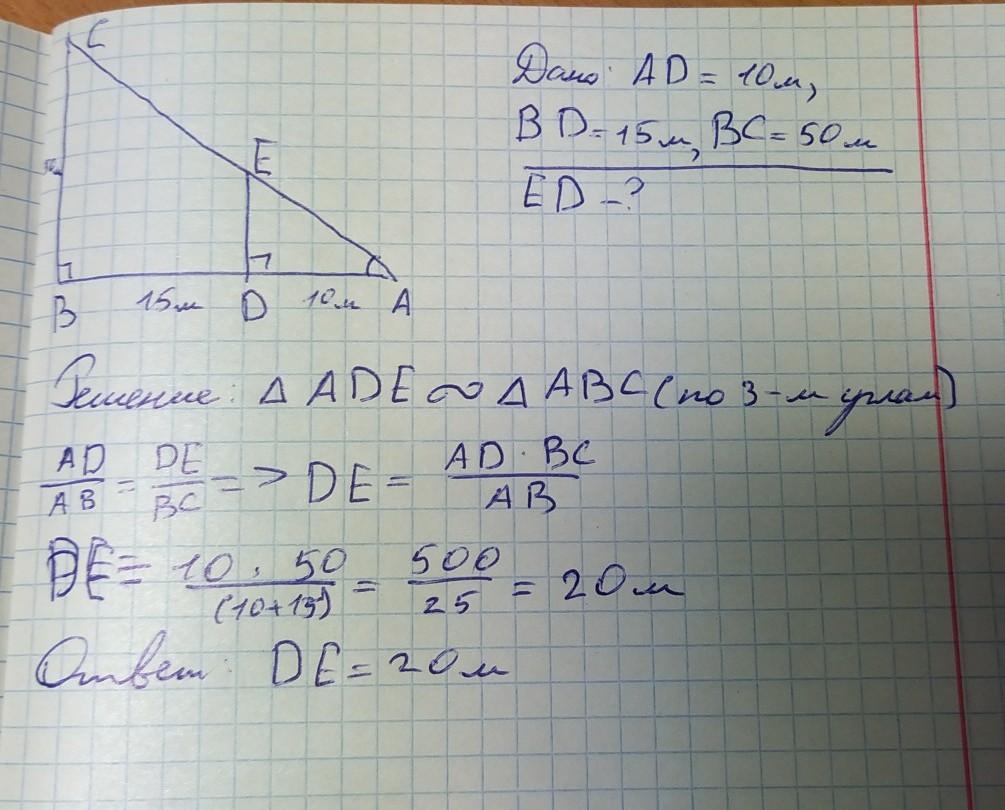 C
E
B 15м D 10м A
Дано: AD = 10м,
BD = 15м, BC = 50м
ED - ?
Решение: △ ADE ∾ △ ABC (по 3-м углам)
AD/AB = DE/BC => DE = AD · BC/AB
DE = 10 · 50/(10+15) = 500/25 = 20м
Ответ: DE = 20м